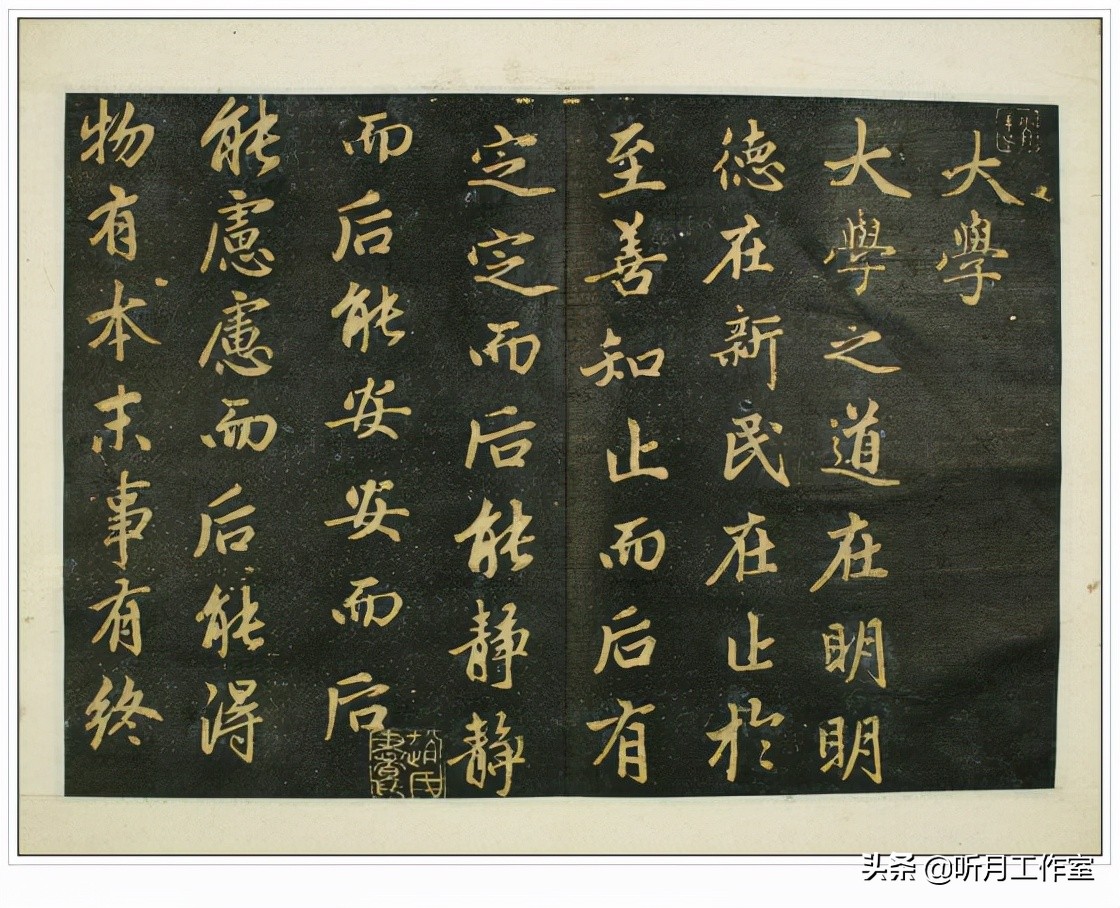 大學
大學之道在明明
德在新民在止於
至善知止而后有
定定而后能静静
而后能安安而后
能慮慮而后能得
物有本末事有終
趙氏
头条 @听月工作室